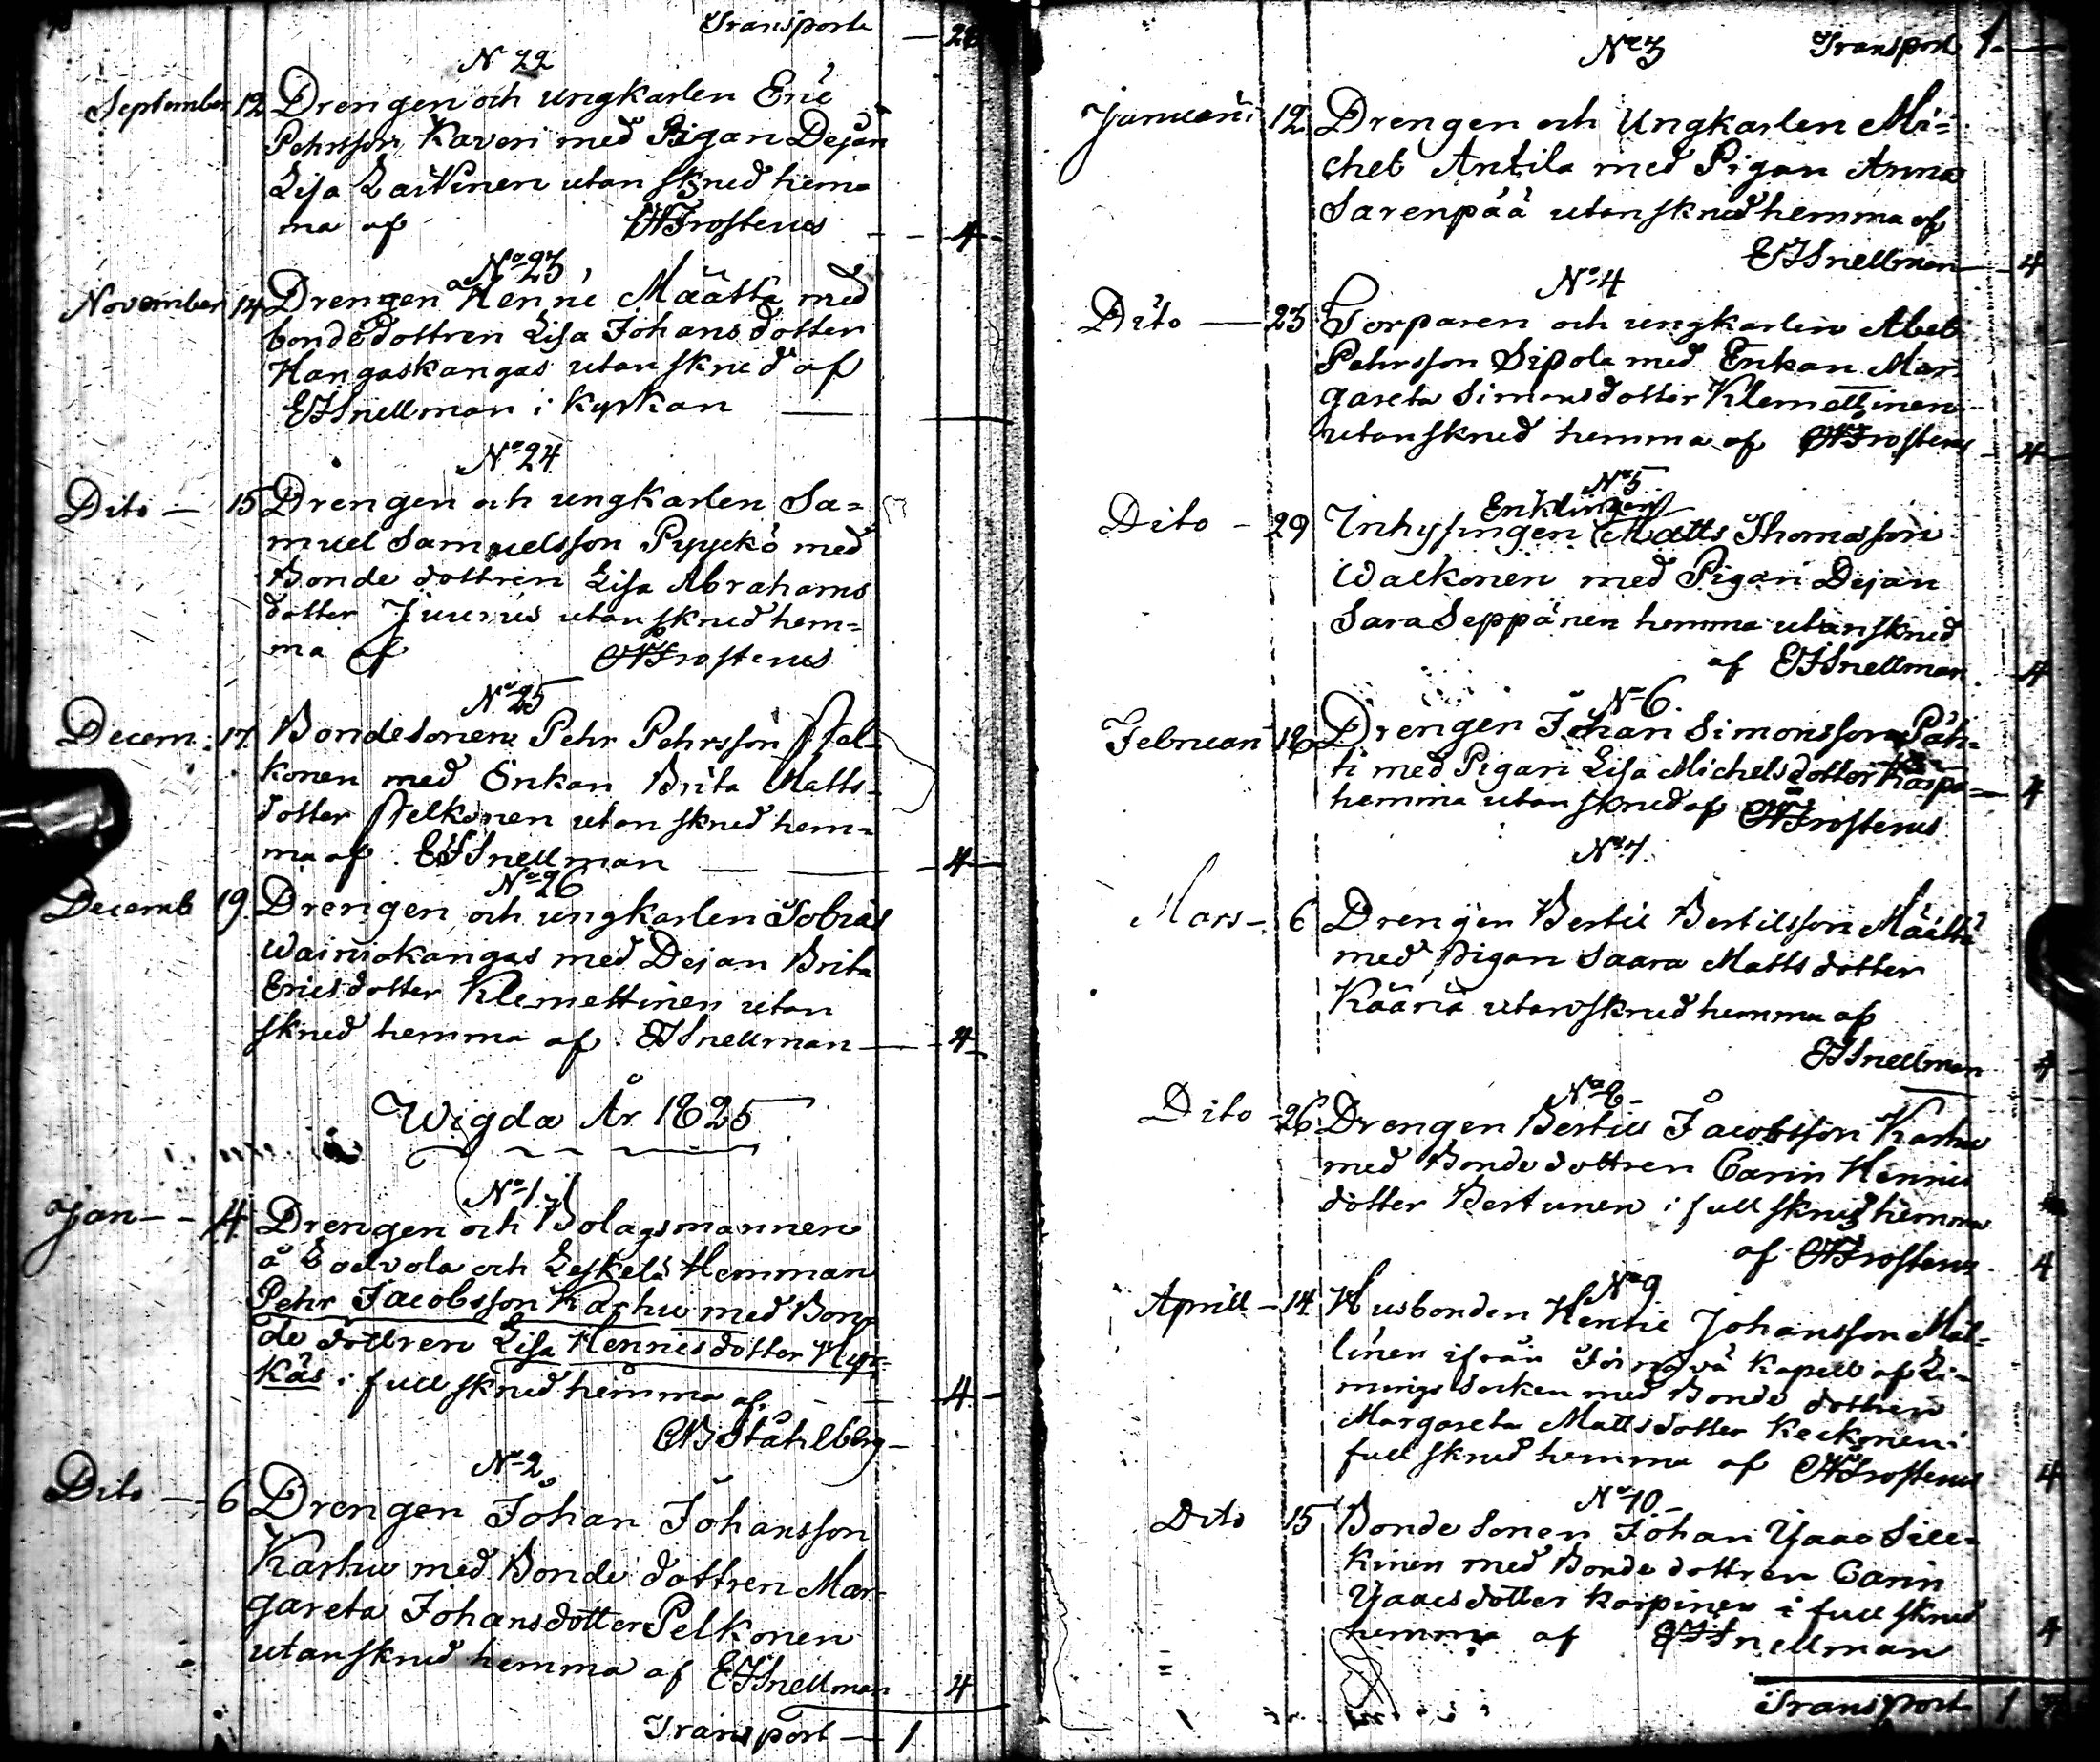 Transporte — 28
No 22
September 12 Drengen och ungkarlen Eric
Pehrsson Kaveri med Pigan Dejan
Lisa Laitinen utan skrud hema
ma af CHFrosterus — 4
No 23
November 14 Drengen Henric Määttä med
bondedottren Lisa Johansdotter
Hangaskangas utan skrud af
EJSnellman i Kyrkan —
No 24
Dito — 15 Drengen och ungkarlen Sa=
muel Samuelsson Pyyckö med
Bonde dottren Lisa Abrahams
dotter Juurus utan skrud hem=
ma af CHFrosterus
No 25
Decem. 17 Bondesonen Pehr Pehrsson Pel=
konen med Enkan Brita Matts=
dotter Pelkonen utan skrud hem=
ma af EJSnellman — 4
No 26
Decemb 19. Drengen och ungkarlen Tobias
Wainiokangas med Dejan Brita
Ericsdotter Klemettinen utan
skrud hemma af EJSnellman — 4
Wigda År 1825
No 1.
Jan — 4. Drengen och Bolagsmannen
å och Leskelä Hemman
Pehr Jacobsson Karhu med Bon
de dottren Lisa Henricsdotter Hyr=
käs i full skrud hemma af — 4
Ståhlberg —
No 2.
Dito — 6 Drengen Johan Johansson
Karhu med Bonde dottren Mar=
gareta Johansdotter Pelkonen
utan skrud hemma af EJSnellman 4
Transport — 1
No 3 Transport 1 —
Januari 12 Drengen och Ungkarlen Mi=
chel Antila med Pigan Anna
Sarenpää utan skrud hemma af
EJSnellman — 4
No 4
Dito — 23 Torparen och ungkarlen Abel
Pehrsson Sipola med Enkan Mar=
gareta Simonsdotter Klemettinen
utan skrud hemma af CHFrosterus — 4
No 5
Enklingen
Dito — 29 Inhysingen Matts Thomasson
Walkonen med Pigan Dejan
Sara Seppänen hemma utan skrud
af EJSnellman. 4
No 6.
Februari 18 Drengen Johan Simonsson Päh=
ti med Pigan Lisa Michelsdotter Karpa — 4
hemma utan skrud af CHFrosterus
No 7.
Mars — 6 Drengen Bertil Bertilsson Määttä
med pigan Saara Mattsdotter
Kääriä utan skrud hemma af
EJSnellman 4
No 8 —
Dito — 26 Drengen Bertil Jacobsson Karhu
med Bonde dottren Carin Henrics
dotter Bertunen i full skrud hemma
af CHFrosterus. 4
No 9
Aprill — 14 Husbonden Henric Johansson Mat=
linen ifrån kapell af Li=
mingo Socken med Bonde dottren
Margareta Mattsdotter Keckonen i
full skrud hemma af CHFrosterus 4
No 10 —
Dito 15 Bonde Sonen Johan Ysaac Sill=
kinen med Bonde dottren Carin
Ysaacsdotter Karpinen i full skrud
hemma af EJSnellman 4
Transport 1